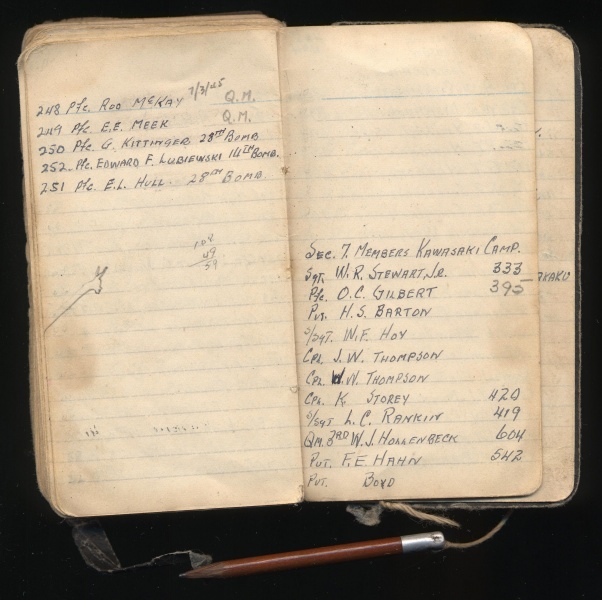 248 Pfc. Rod McKay 7/3/45 Q.M.
249 Pfc E.E. Meek Q.M.
250 Pfc. G. Kittinger 28TH Bomb
252 Pfc. Edward F. Lubiewski 14TH Bomb.
251 Pfc E.L. Hull. 28TH Bomb
108
49
59
Sec. 7. Members Kawasaki Camp.
Sgt. W.R. Stewart, Jr. 333
Pfc. O.C. Gilbert 395
Pvt. H.S. Barton
S/Sgt. W.F. Hoy
Cpl J.W. Thompson
Cpl. W.W. Thompson
Cpl. K Storey 420
S/Sgt L.C. Rankin 419
QM. 3RD W.J. Hollenbeck 604
Pvt. F.E. Hahn 542
Pvt. Boyd